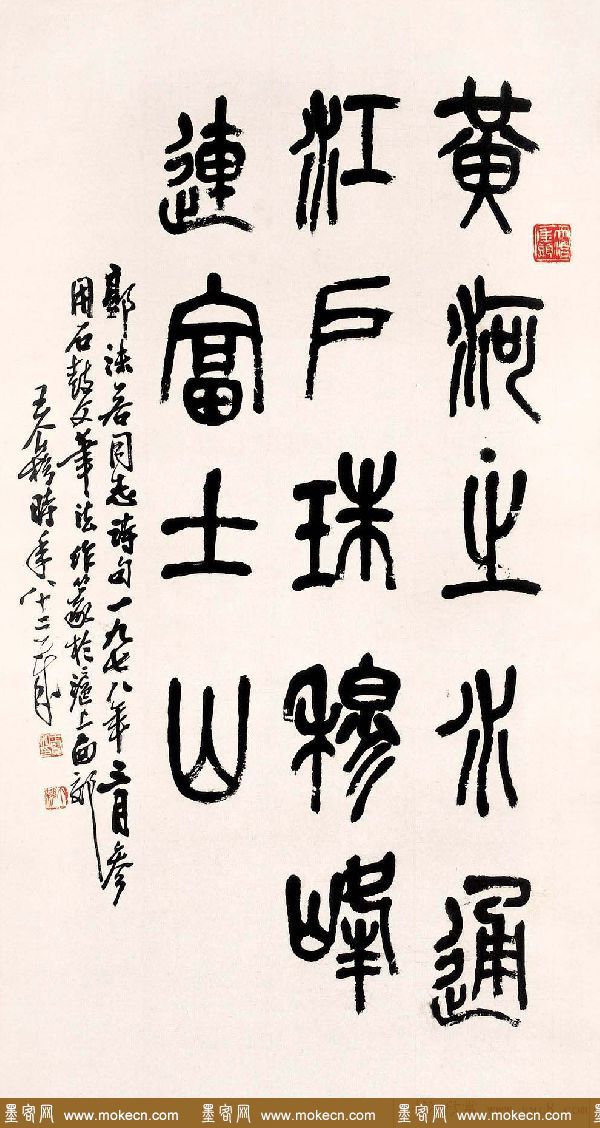 黃河之水通
江戶珠穆峰
連富士山
郭沫若同志詩句一九七八年三月參
用石鼓文筆法作篆於滬上西郊
王个簃時年八十二歲
墨客网 www.mokecn.com 墨客网 www.mokecn.com 墨客网 www.mokecn.com